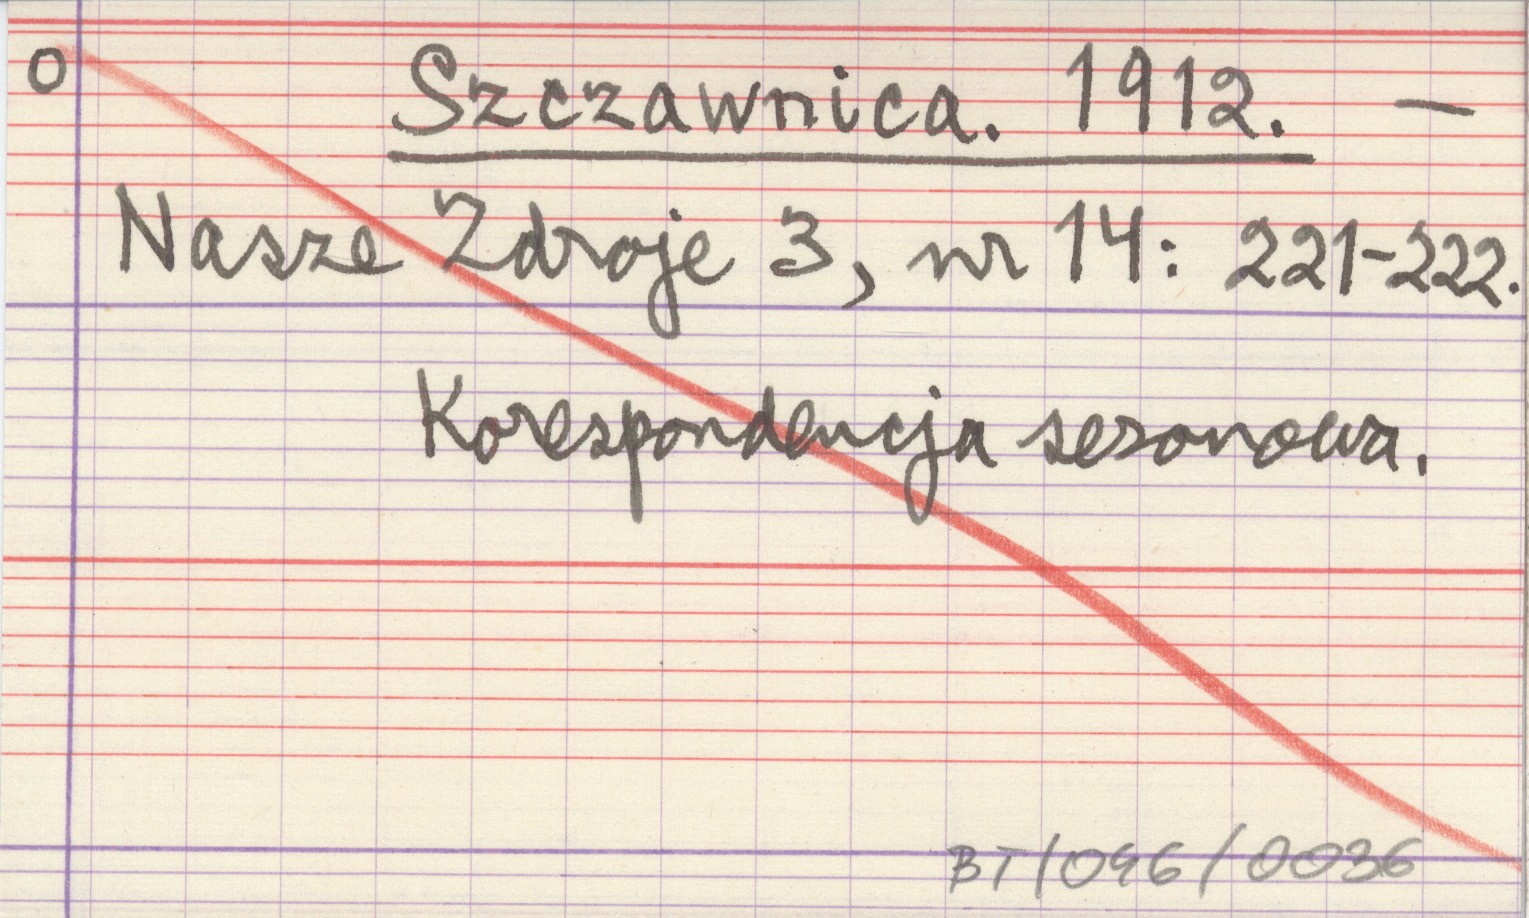 O Szczawnica. 1912. —
Nasze Zdroje 3, nr 14: 221-222.
Korespondencja sezonowa.
BT/096/0036